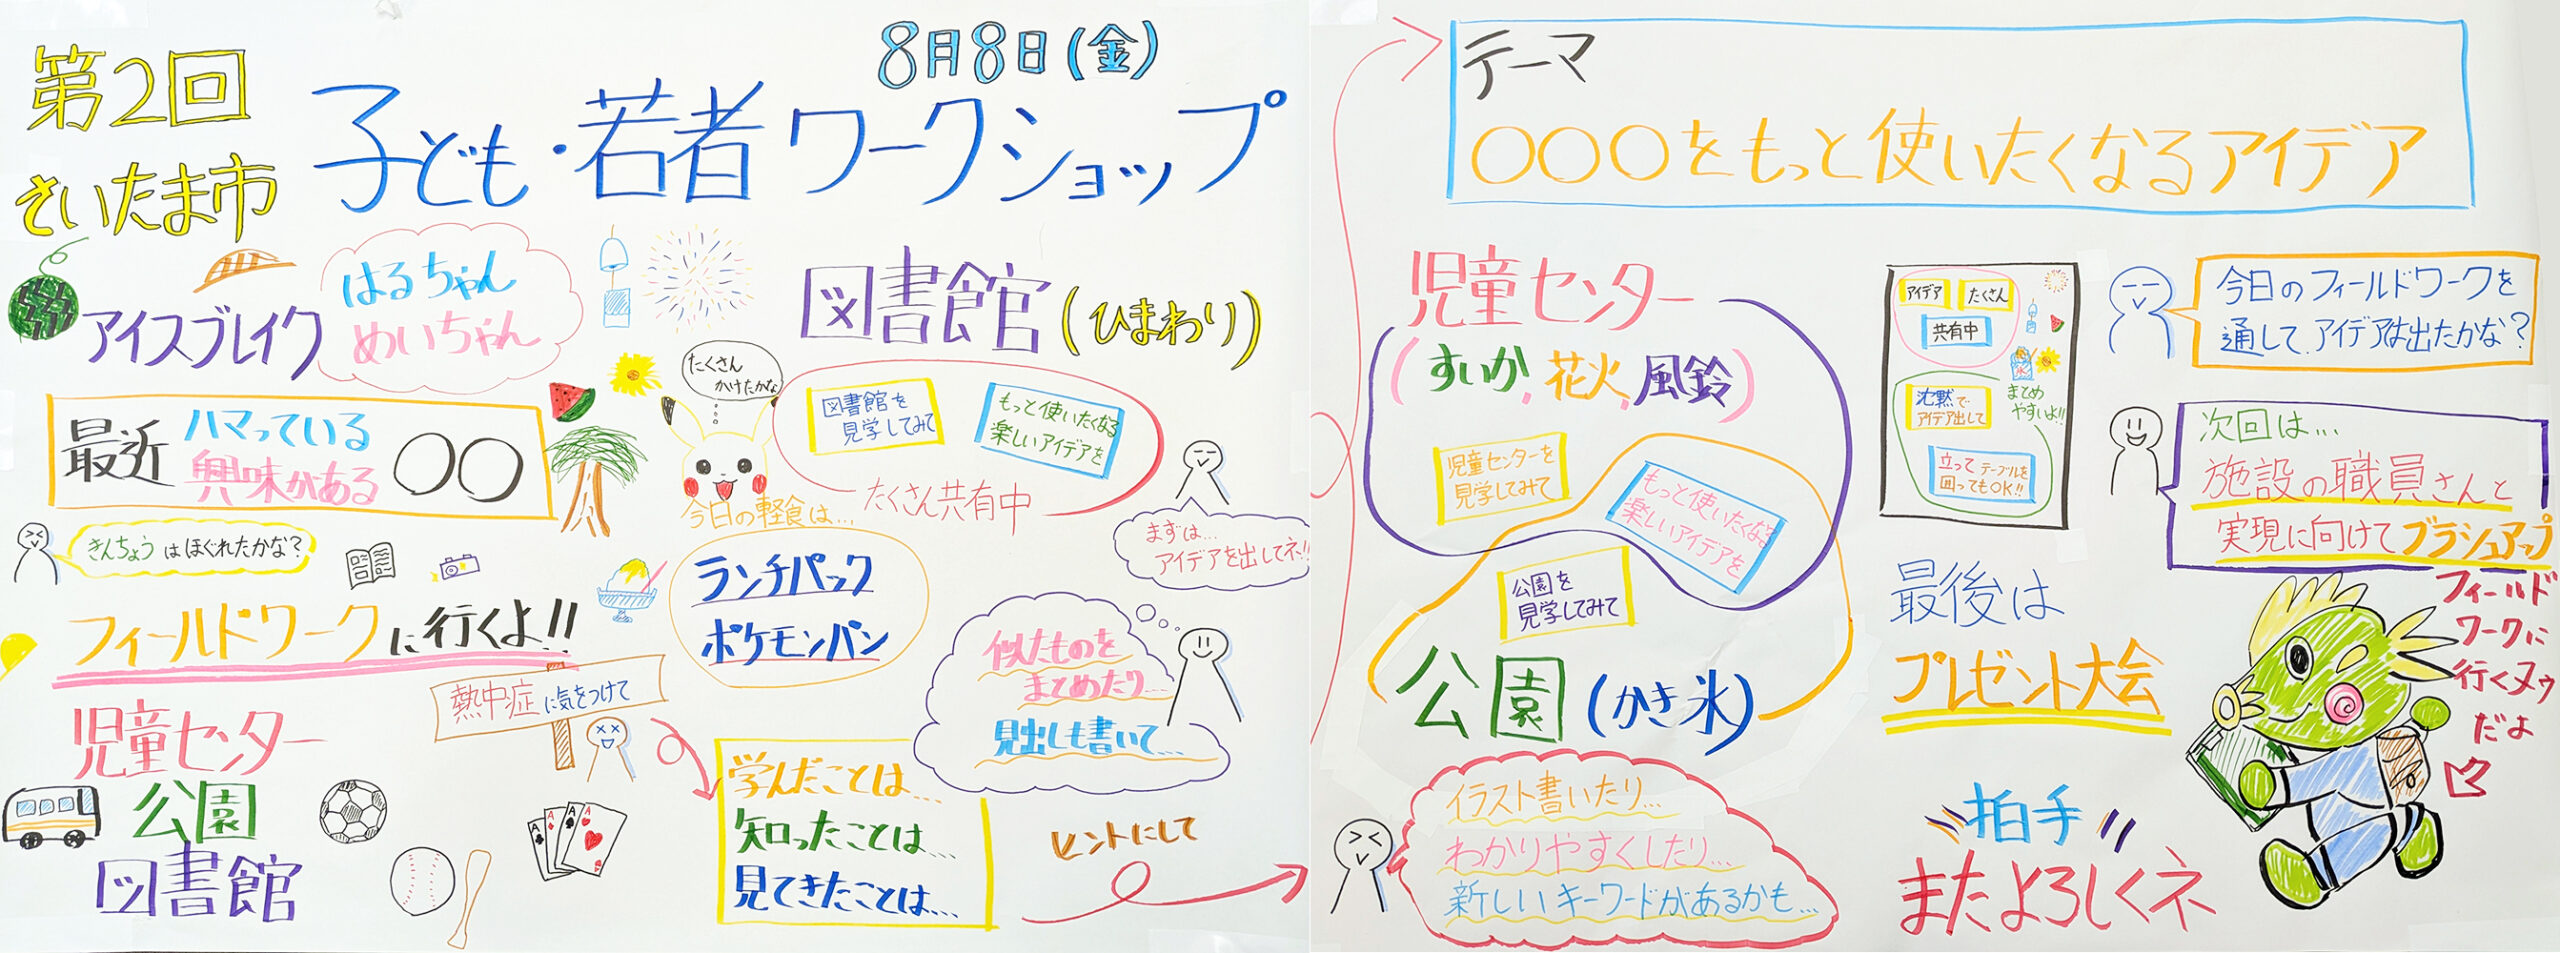 第2回
さいたま市
8月8日(金)
子ども・若者ワークショップ
アイスブレイク
はるちゃん
めいちゃん
最近
ハマっている
興味がある
〇〇
きんちょうはほぐれたかな?
フィールドワークに行くよ!!
熱中症に気をつけて
児童センター
公園
図書館
たくさん
かけたかな
今日の軽食は…
ランチパック
ポケモンパン
図書館(ひまわり)
図書館を
見学してみて
もっと使いたくなる
楽しいアイデアを
たくさん共有中
まずは…
アイデアを出してネ!!
似たものを
まとめたり…
見出しも書いて…
学んだことは…
知ったことは…
見てきたことは…
ヒントにして
テーマ
〇〇〇をもっと使いたくなるアイデア
児童センター
(すいか,花火,風鈴)
児童センターを
見学してみて
もっと使いたくなる
楽しいアイデアを
公園を
見学してみて
公園(かき氷)
イラスト書いたり…
わかりやすくしたり…
新しいキーワードがあるかも…
アイデア
たくさん
共有中
沈黙で
アイデア出して
まとめ
やすいよ!!
立ってテーブルを
囲ってもOK!!
今日のフィールドワークを
通して、アイデアは出たかな?
次回は…
施設の職員さんと
実現に向けてブラシュアップ
最後は
プレゼント大会
拍手
またよろしくネ
フィールド
ワークに
行くヌゥ
だよ